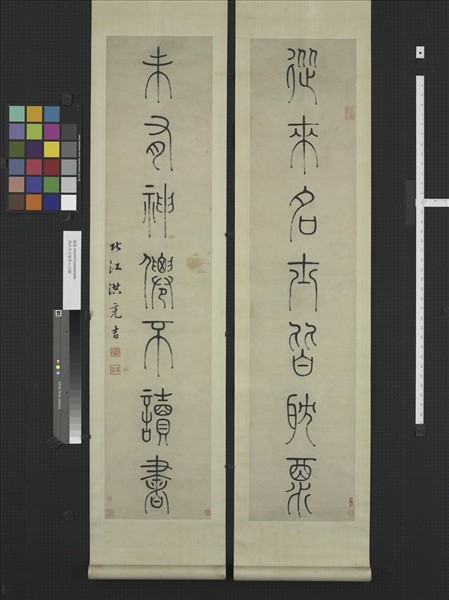 從來名士皆耽酒
未有神僊不讀書
北江洪亮吉